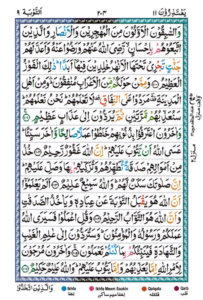 يَعْتَذِرُوْنَ ۱۱ ۲۰۳ اَلتَّوْبَة ۹
وَالسّٰبِقُوْنَ الْاَوَّلُوْنَ مِنَ الْمُهٰجِرِيْنَ وَالْاَنْصَارِ وَالَّذِيْنَ
اتَّبَعُوْهُمْ بِاِحْسَانٍ رَّضِيَ اللّٰهُ عَنْهُمْ وَرَضُوْا عَنْهُ وَاَعَدَّ لَهُمْ
جَنّٰتٍ تَجْرِيْ تَحْتَهَا الْاَنْهٰرُ خٰلِدِيْنَ فِيْهَا اَبَدًا ذٰلِكَ الْفَوْزُ
الْعَظِيْمُ وَمِمَّنْ حَوْلَكُمْ مِّنَ الْاَعْرَابِ مُنٰفِقُوْنَ وَمِنْ اَهْلِ
الْمَدِيْنَةِ مَرَدُوْا عَلَى النِّفَاقِ لَا تَعْلَمُهُمْ نَحْنُ نَعْلَمُهُمْ
سَنُعَذِّبُهُمْ مَّرَّتَيْنِ ثُمَّ يُرَدُّوْنَ اِلٰى عَذَابٍ عَظِيْمٍ
وَاٰخَرُوْنَ اعْتَرَفُوْا بِذُنُوْبِهِمْ خَلَطُوْا عَمَلًا صَالِحًا وَّاٰخَرَ سَيِّئًا
عَسَى اللّٰهُ اَنْ يَّتُوْبَ عَلَيْهِمْ اِنَّ اللّٰهَ غَفُوْرٌ رَّحِيْمٌ خُذْ
مِنْ اَمْوَالِهِمْ صَدَقَةً تُطَهِّرُهُمْ وَتُزَكِّيْهِمْ بِهَا وَصَلِّ عَلَيْهِمْ اِنَّ
صَلٰوتَكَ سَكَنٌ لَّهُمْ وَاللّٰهُ سَمِيْعٌ عَلِيْمٌ اَلَمْ يَعْلَمُوْا
اَنَّ اللّٰهَ هُوَ يَقْبَلُ التَّوْبَةَ عَنْ عِبَادِهٖ وَيَاْخُذُ الصَّدَقٰتِ
وَاَنَّ اللّٰهَ هُوَ التَّوَّابُ الرَّحِيْمُ وَقُلِ اعْمَلُوْا فَسَيَرَى اللّٰهُ
عَمَلَكُمْ وَرَسُوْلُهٗ وَالْمُؤْمِنُوْنَ وَسَتُرَدُّوْنَ اِلٰى عٰلِمِ الْغَيْبِ
وَالشَّهَادَةِ فَيُنَبِّئُكُمْ بِمَا كُنْتُمْ تَعْمَلُوْنَ وَاٰخَرُوْنَ مُرْجَوْنَ
لِاَمْرِ اللّٰهِ اِمَّا يُعَذِّبُهُمْ وَاِمَّا يَتُوْبُ عَلَيْهِمْ وَاللّٰهُ عَلِيْمٌ حَكِيْمٌ
وَالَّذِيْنَ اتَّخَذُوْا
Ikhfa Ikhfa Meem Saakin Qalqala Qalb